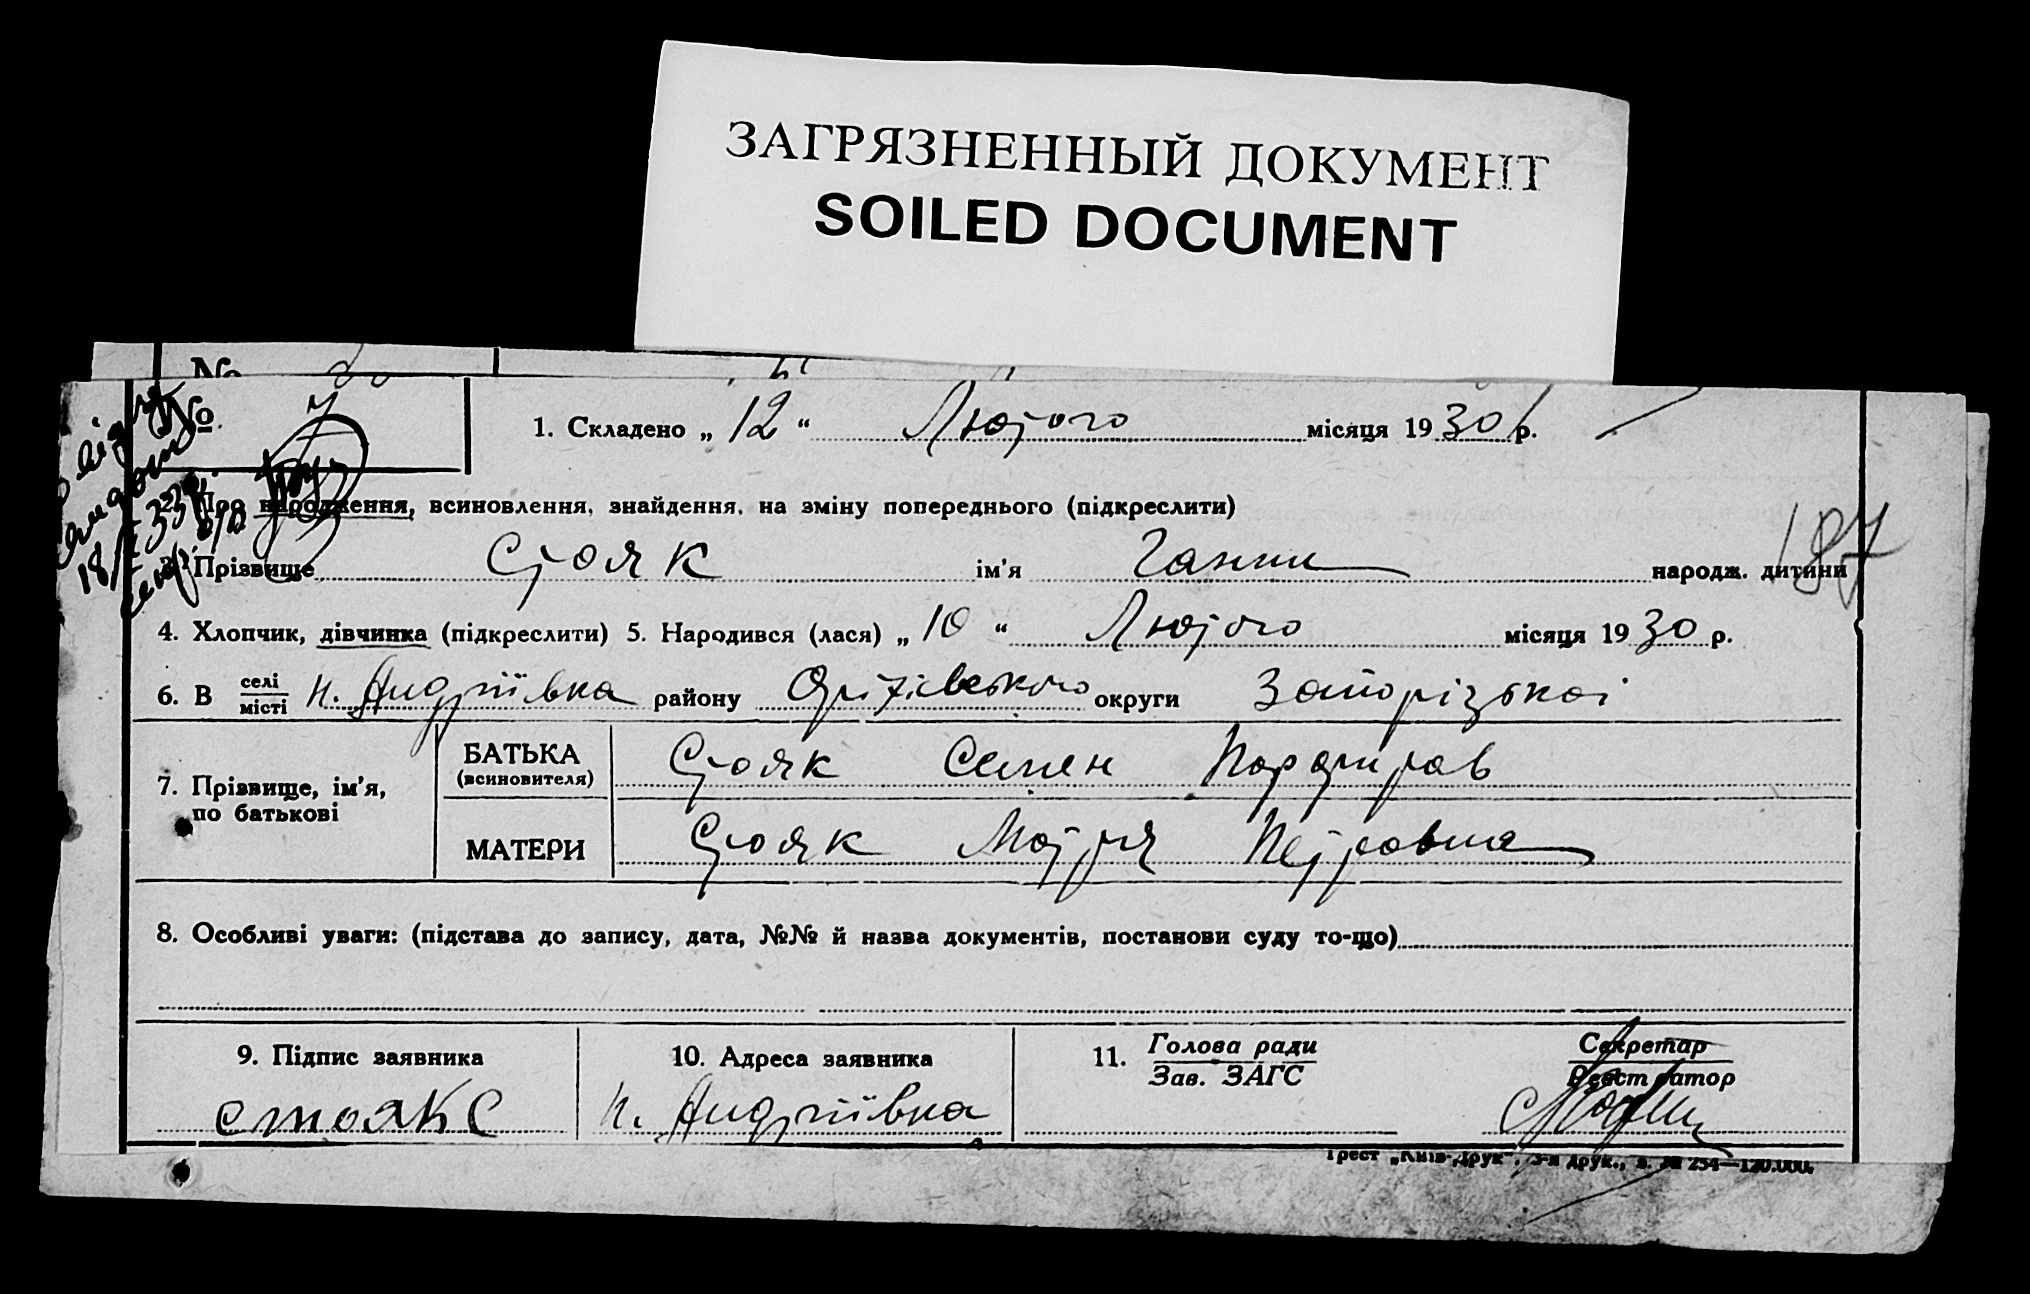 ЗАГРЯЗНЕННЫЙ ДОКУМЕНТ
SOILED DOCUMENT
№
№ 7
1. Складено „ 12 “ Лютого місяця 1930 р.
2. Про народження, всиновлення, знайдення, на зміну попереднього (підкреслити)
3. Прізвище Стояк ім'я Ганни народж. дитини
187
4. Хлопчик, дівчинка (підкреслити) 5. Народився (лася) „ 10 “ Лютого місяця 1930 р.
6. В селі місті н. Андріївка району Оріхівського округи Запорізької
7. Прізвище, ім'я, по батькові
БАТЬКА (всиновителя) Стояк Семен Порфиров
МАТЕРИ Стояк Мотря Петровна
8. Особливі уваги: (підстава до запису, дата, №№ й назва документів, постанови суду то-що)
9. Підпис заявника
10. Адреса заявника
11. Голова ради Зав. ЗАГС
Секретар Реєстратор
СтоякС
н. Андріївка
Трест „Київ-Друк“, 3-я друк., з. № 254—120.000.